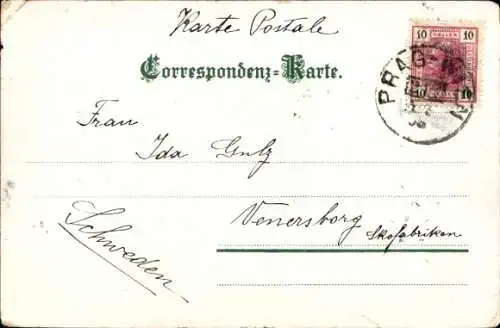 Karte Postale
Correspondenz-Karte.
10 HELLER 10
10 10
PRAG
Frau
Ida Gulz
Venersborg
Skofabriken
Schweden